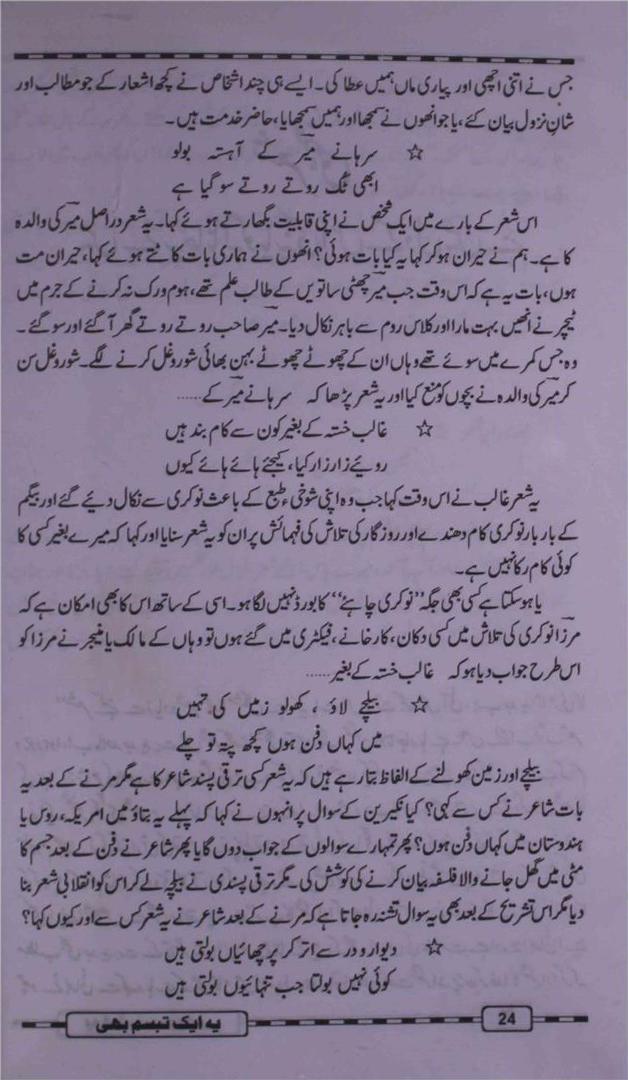 جس نے اتنی اچھی اور پیاری ماں ہمیں عطا کی۔ ایسے ہی چند اشخاص نے کچھ اشعار کے جو مطالب اور
شانِ نزول بیان کئے، یا جو انھوں نے سمجھا اور ہمیں سمجھایا، حاضر خدمت ہیں۔
☆ سرہانے میر کے آہستہ بولو
ابھی ٹک روتے روتے سو گیا ہے
اس شعر کے بارے میں ایک شخص نے اپنی قابلیت بگھارتے ہوئے کہا۔ یہ شعر دراصل میر کی والدہ
کا ہے۔ ہم نے حیران ہوکر کہا یہ کیا بات ہوئی؟ انھوں نے ہماری بات کاٹتے ہوئے کہا، حیران مت
ہوں، بات یہ ہے کہ اس وقت جب میر چھٹی ساتویں کے طالب علم تھے، ہوم ورک نہ کرنے کے جرم میں
ٹیچر نے انھیں بہت مارا اور کلاس روم سے باہر نکال دیا۔ میر صاحب روتے روتے گھر آ گئے اور سو گئے۔
وہ جس کمرے میں سوئے تھے وہاں ان کے چھوٹے چھوٹے بہن بھائی شور و غل کرنے لگے۔ شور و غل سن
کر میر کی والدہ نے بچوں کو منع کیا اور یہ شعر پڑھا کہ سرہانے میر کے......
☆ غالب خستہ کے بغیر کون سے کام بند ہیں
روئیے زار زار کیا، کیجئے ہائے ہائے کیوں
یہ شعر غالب نے اس وقت کہا جب وہ اپنی شوخیٔ طبع کے باعث نوکری سے نکال دیئے گئے اور بیگم
کے بار بار نوکری کام دھندے اور روزگار کی تلاش کی فہمائش پر ان کو یہ شعر سنایا اور کہا کہ میرے بغیر کسی کا
کوئی کام رکا نہیں ہے۔
یا ہو سکتا ہے کسی بھی جگہ ’’نوکری چاہئے‘‘ کا بورڈ نہیں لگا ہو۔ اسی کے ساتھ اس کا بھی امکان ہے کہ
مرزا نوکری کی تلاش میں کسی دکان، کارخانے، فیکٹری میں گئے ہوں تو وہاں کے مالک یا منیجر نے مرزا کو
اس طرح جواب دیا ہو کہ غالب خستہ کے بغیر......
☆ بیلچے لاؤ ، کھولو زمیں کی تہیں
میں کہاں دفن ہوں کچھ پتہ تو چلے
بیلچے اور زمین کھولنے کے الفاظ بتا رہے ہیں کہ یہ شعر کسی ترقی پسند شاعر کا ہے مگر مرنے کے بعد یہ
بات شاعر نے کس سے کہی؟ کیا نکیرین کے سوال پر انہوں نے کہا کہ پہلے یہ بتاؤ میں امریکہ، روس یا
ہندوستان میں کہاں دفن ہوں؟ پھر تمہارے سوالوں کے جواب دوں گا یا پھر شاعر نے دفن کے بعد جسم کا
مٹی میں گھل جانے والا فلسفہ بیان کرنے کی کوشش کی۔ مگر ترقی پسندی نے بیلچہ لے کر اس کو انقلابی شعر بنا
دیا مگر اس تشریح کے بعد بھی یہ سوال تشنہ رہ جاتا ہے کہ مرنے کے بعد شاعر نے یہ شعر کس سے اور کیوں کہا؟
☆ دیوار و در سے اتر کر پرچھائیاں بولتی ہیں
کوئی نہیں بولتا جب تنہائیاں بولتی ہیں
24
یہ ایک تبسم بھی